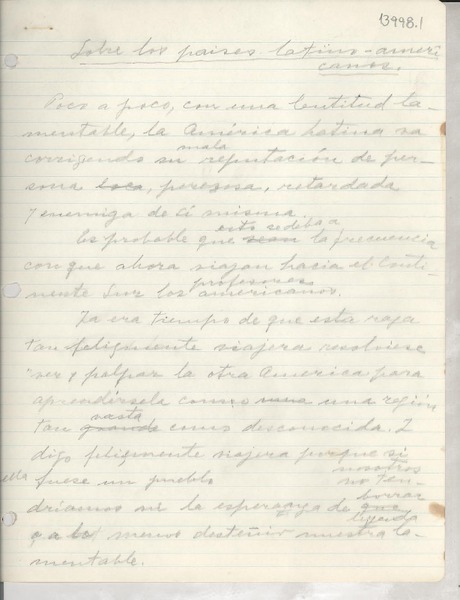 13998.1
Sobre los países latino-ameri
canos.
Poco a poco, con una lentitud la-
mentable, la América Latina va
mala
corrigiendo su reputación de per-
sona loca, perezosa, retardada
y enemiga de sí misma.
esto se deba a
Es probable que sean la frecuencia
con que ahora viajan hacia el Conti-
profesores
nente Sur los americanos.
Ya era tiempo de que esta raza
tan felizmente viajera resolviese
ver y palpar la otra America para
aprendérsela como una región
vasta
tan grande como desconocida. I
digo felizmente viajera porque si
nosotros
ella fuese un pueblo no ten-
borrar
dríamos ni la esperanza de que
leyenda
ya lo menos desteñir nuestra la-
mentable.